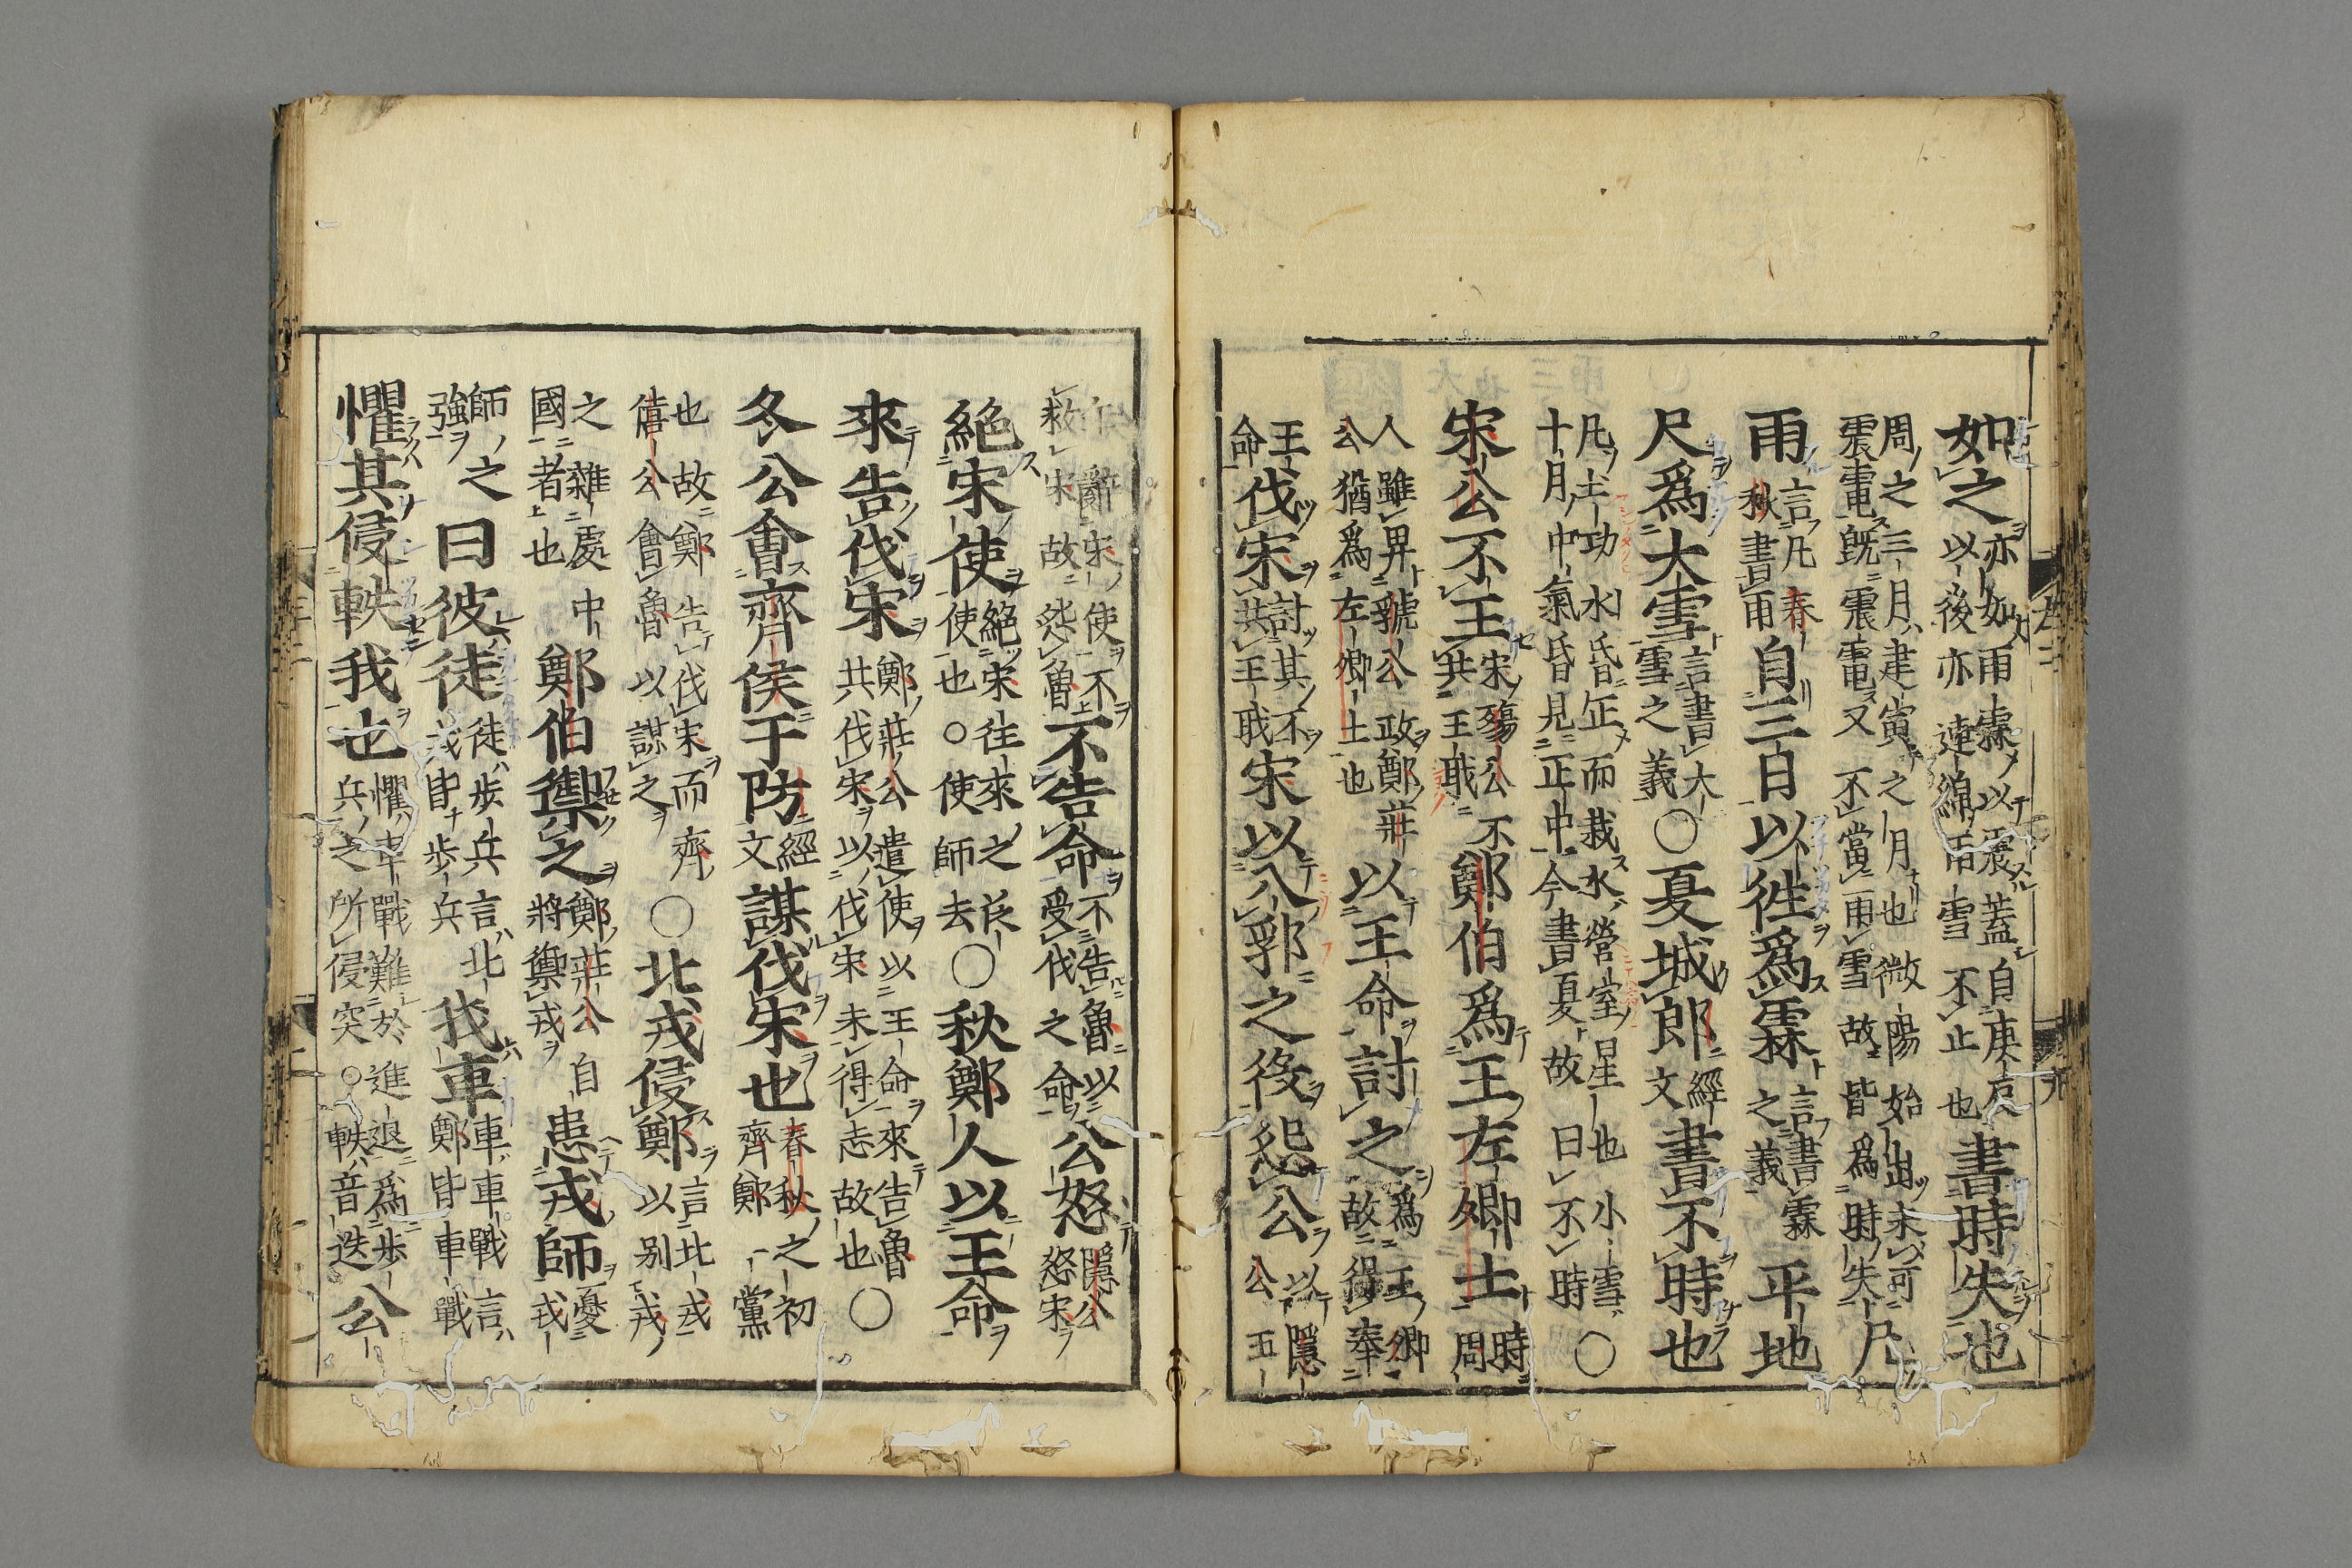 如之亦如雨霖ノ以震蓋自庚辰以後亦連綿雨雪不止也書時失也
周ノ之三月ハ建寅ノ之月也微陽始出未可震電既震電又不當雨雪故皆爲時失凡
雨言凡春秋書雨自三日以徃爲霖言書霖之義平地
尺爲大雪言書大雪之義○夏城郎經文書不時也
凡土功水昏正而栽水營室ノ星也小雪○十月中氣昏見正中今書夏故曰不時
宋公不王宋殤公不共王職鄭伯爲王左卿士時周
人雖畀虢公政鄭莊公猶爲左卿士也以王命討之爲王卿故得奉
王命伐宋討其不共王職宋以入郛之役怨公以隱公五
年辭宋使不救宋故怨魯不告命不告魯以受伐之命公怒隱公怒宋
絶宋使絶宋徃來之使也○使師去○秋鄭人以王命
來告伐宋鄭莊公遣使以王命來告魯共伐宋以伐宋未得志故也○
冬公會齊侯于防經文謀伐宋也春秋之初齊鄭一黨
也故鄭告伐宋而齊僖公會魯以謀之○北戎侵鄭言北戎以别戎
之雜處中國者也鄭伯禦之鄭莊公自將禦戎患戎師憂戎
師ノ之強曰彼徒徒歩兵言北戎皆歩兵我車車車戰言鄭皆車戰
懼其侵軼我也懼車戰難於進退爲歩兵之所侵突○軼音迭公